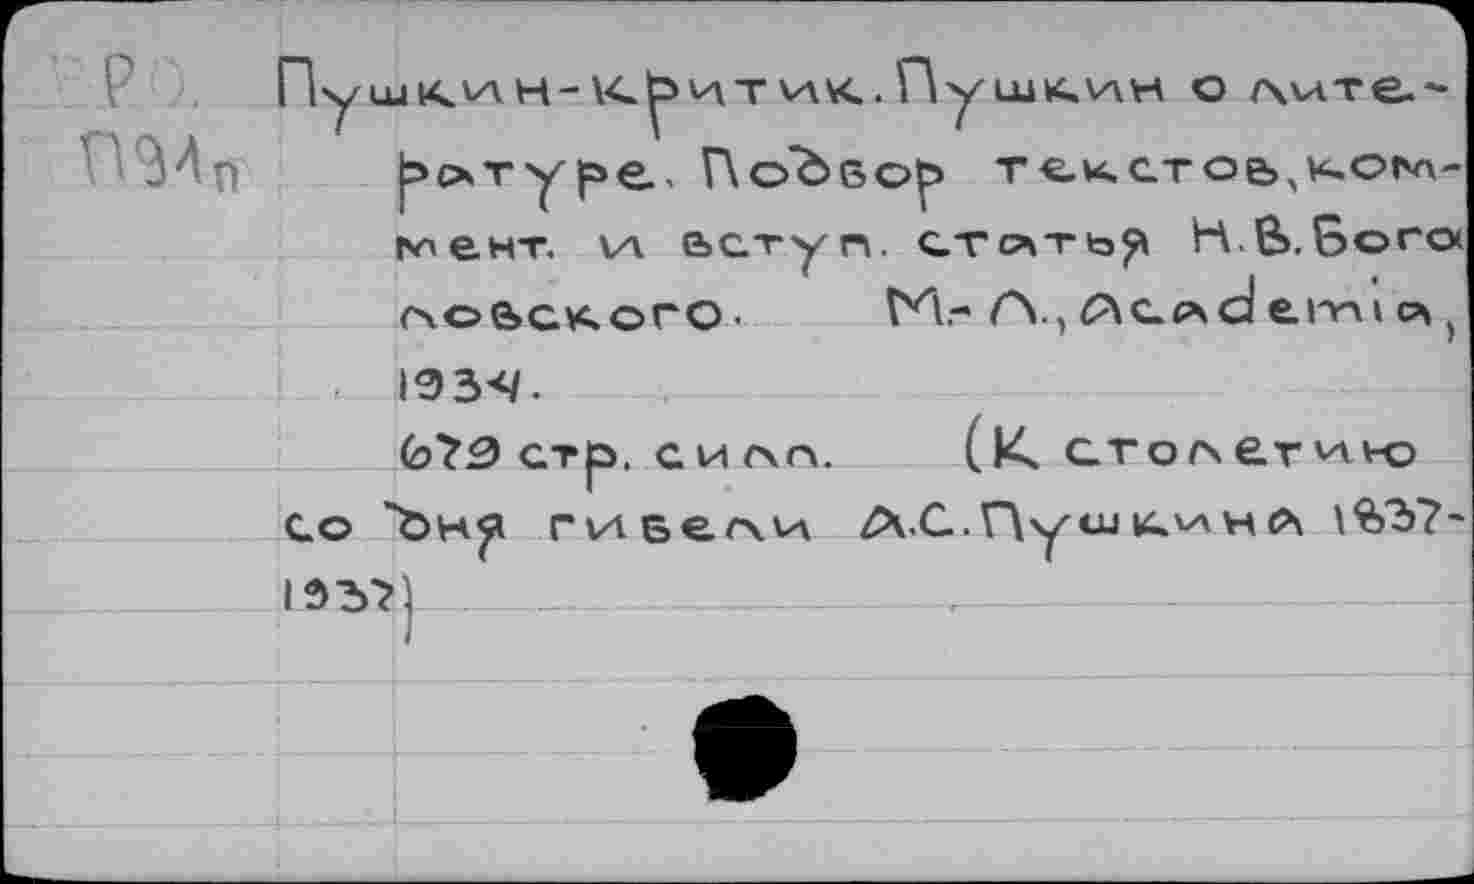 Р
П91п
Пушкин-критик. Пушкин о лите-
ратуре. Подбор текстов, ком-
мент. и вступ. статья Н.В. Бого
ловского. М.-Л., Academia,
1934.
679 стр. с илл. (К столетию
со дня гибели А.С. Пушкина 1837-
1937)